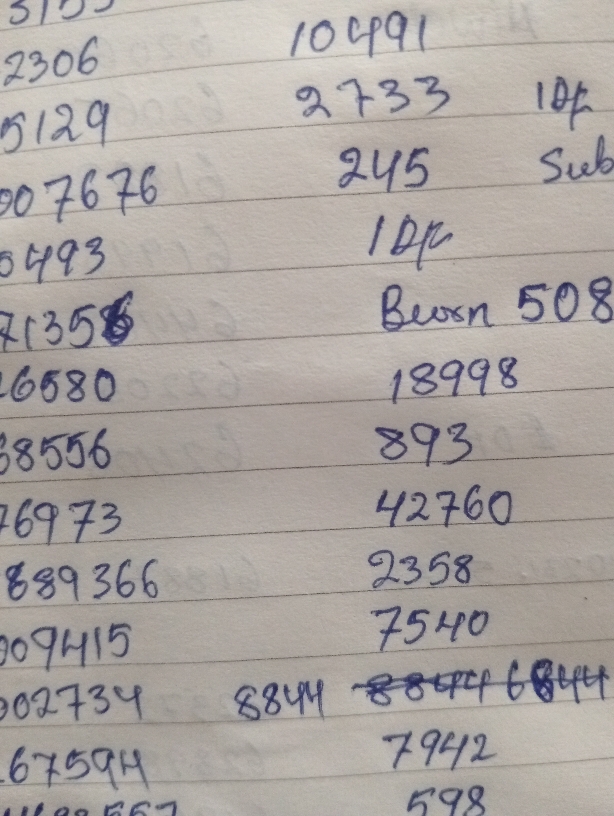 2306 10491
5129 2733 1Dp
007676 245 Sub
0493 1Dp
71356 Burn 508
26580 18998
58556 893
76973 42760
889366 2358
009415 7540
002734 8844 8844 6844
67594 7942
598